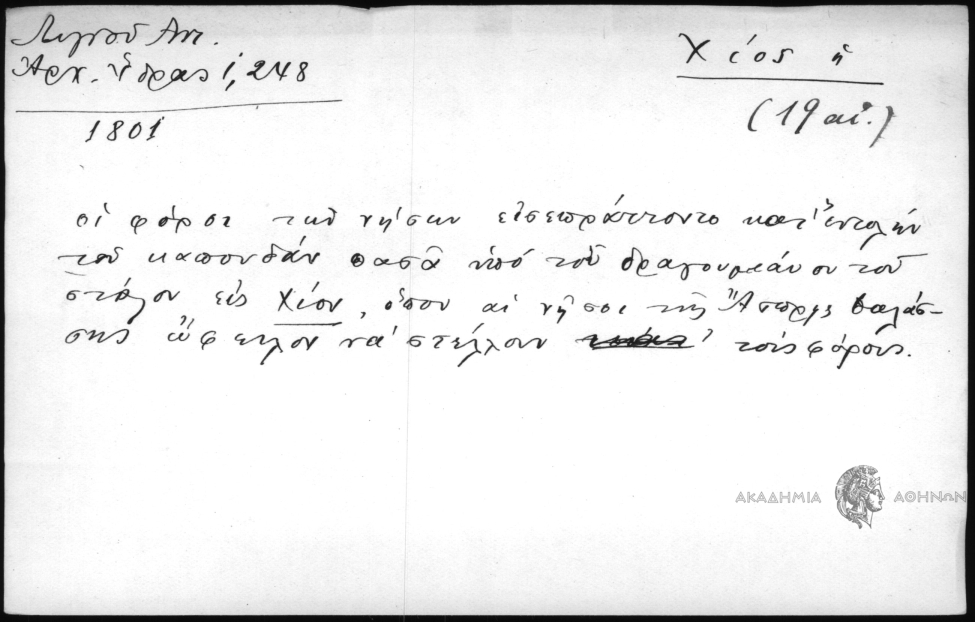 Λιγνοῦ Αντ.
Ἀρχ. Ὕδρας 1, 248
1801
Χίος ἡ
(19 αἰ.)
οἱ φόροι τῶν νήσων εἰσεπράττοντο κατ' ἐντολήν
τοῦ καπουδάν πασᾶ ὑπό τοῦ δραγουμάνου τοῦ
στόλου εἰς Χίον, ὅπου αἱ νῆσοι τῆς Ἄσπρης θαλάσ-
σης ὤφειλον νά στέλλουν τούς φόρους.
ΑΚΑΔΗΜΙΑ ΑΘΗΝΩΝ